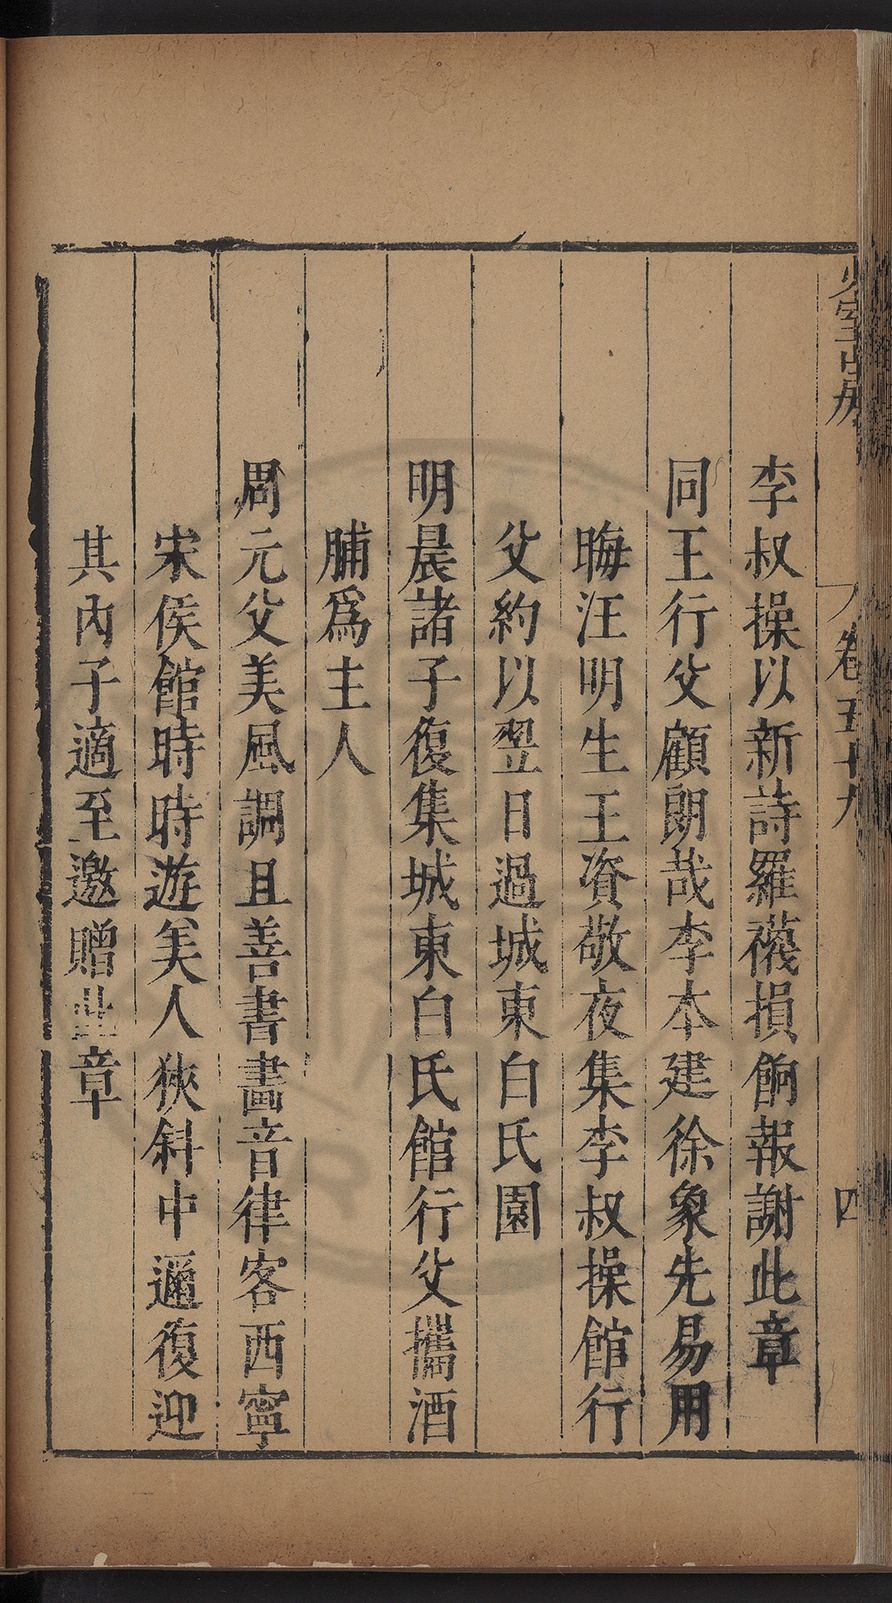 少室山房 卷五十九 四
李叔操以新詩羅襪損餉報謝此章
同王行父顧朗哉李本建徐象先易用
晦汪明生王資敬夜集李叔操館行
父約以翌日過城東白氏園
明晨諸子復集城東白氏館行父攜酒
脯爲主人
周元父美風調且善書畫音律客西寧
宋侯館時時遊美人狹斜中邇復迎
其內子適至邀贈此章